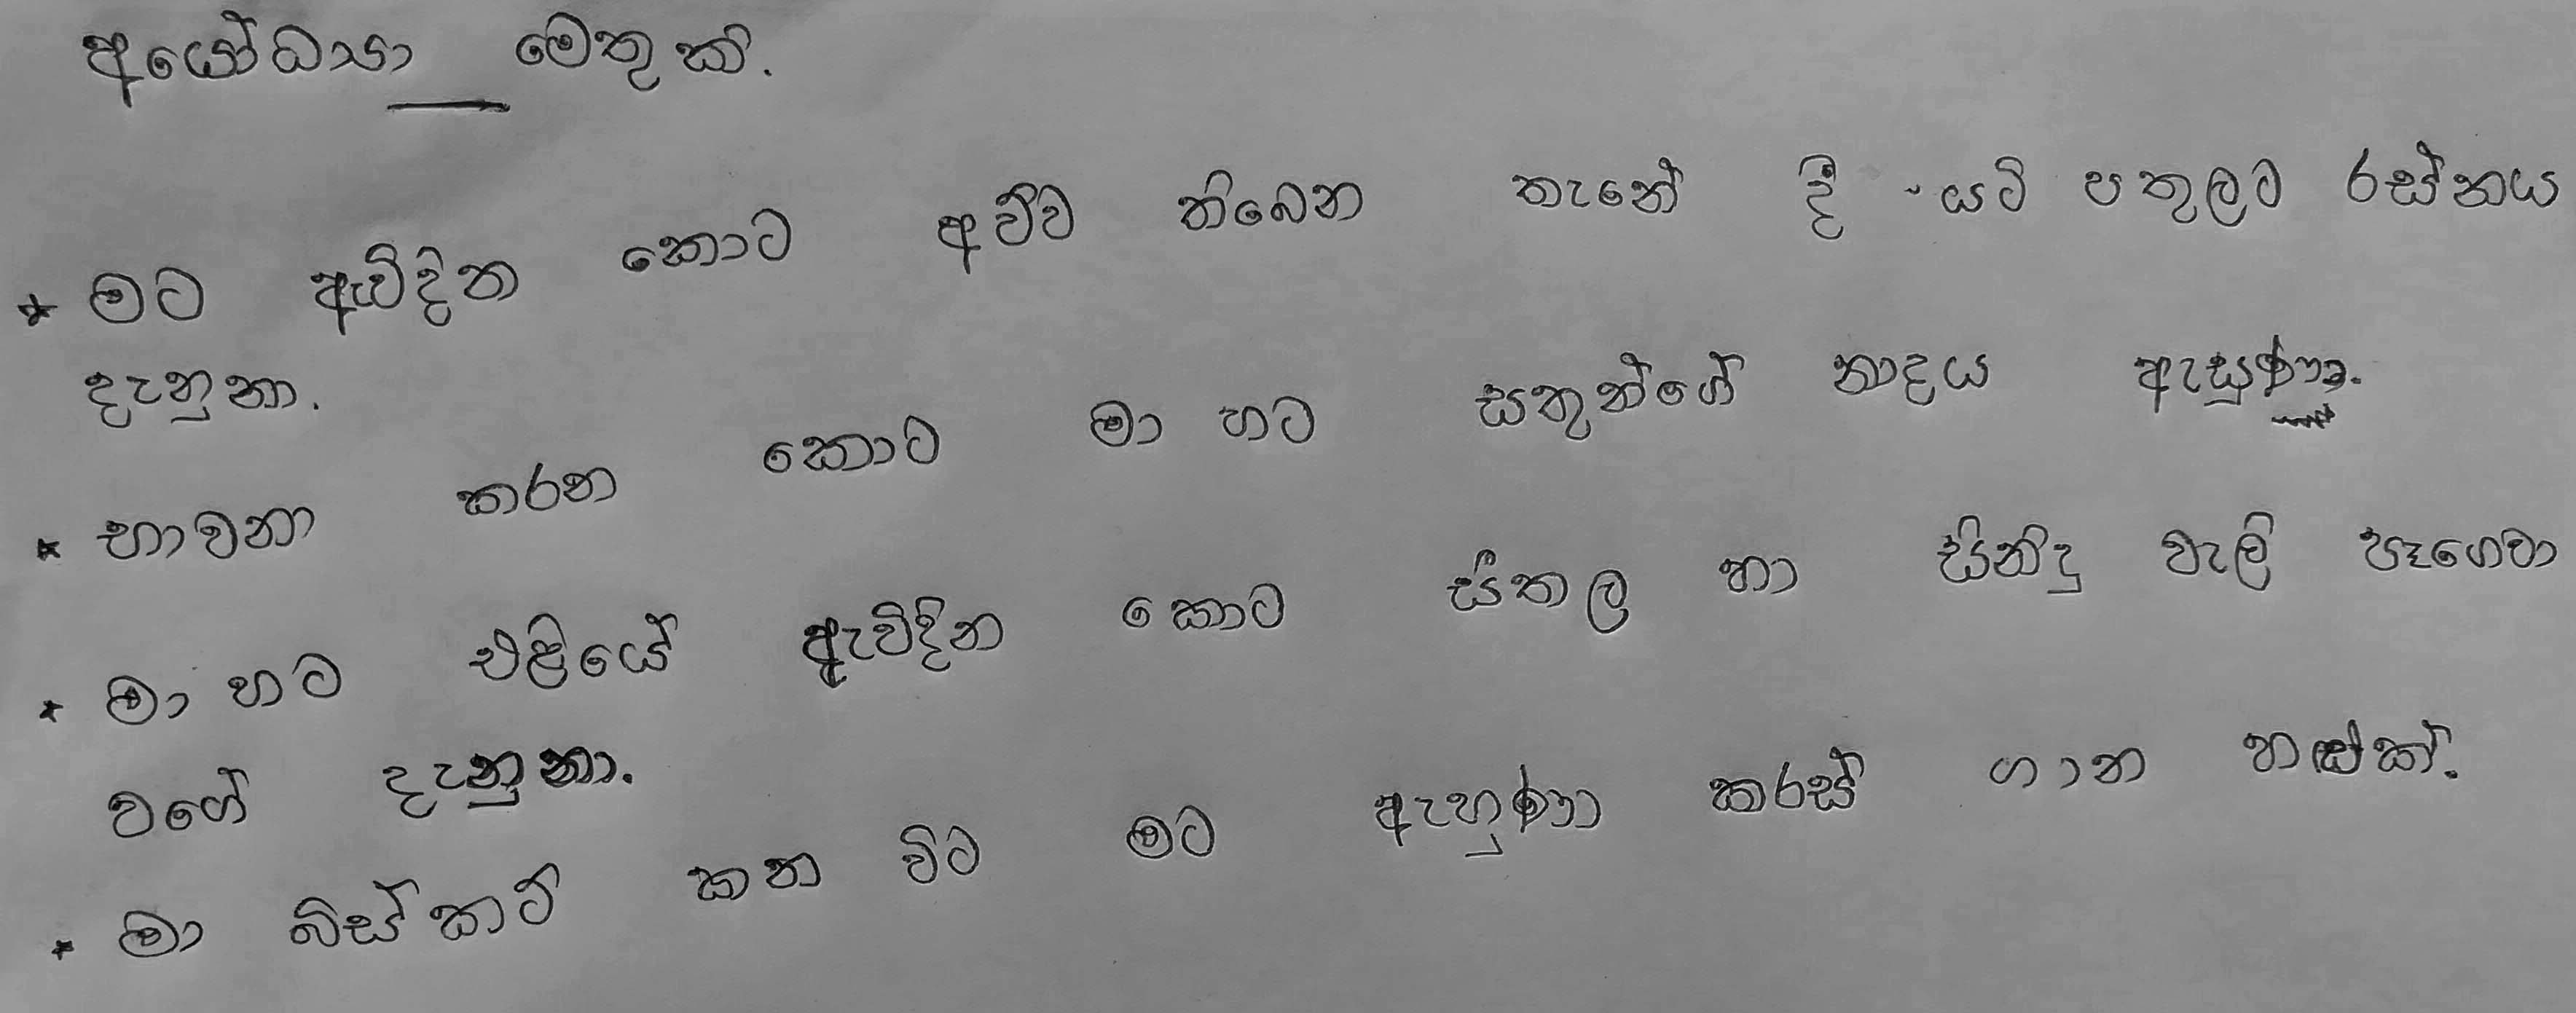 අයෝධ්‍යා මෙතුකි.
* මට ඇවිදින කොට අව්ව තිබෙන තැනේ දී යටි පතුලට රස්නය
දැනුනා.
* භාවනා කරන කොට මා හට සතුන්ගේ නාදය ඇසුණා.
* මා හට එළියේ ඇවිදින කොට සීතල හා සිනිදු වැලි පෑගෙවා
වගේ දැනුනා.
* මා බිස්කට් කන විට මට ඇහුණා කරස් ගාන හඬක්.